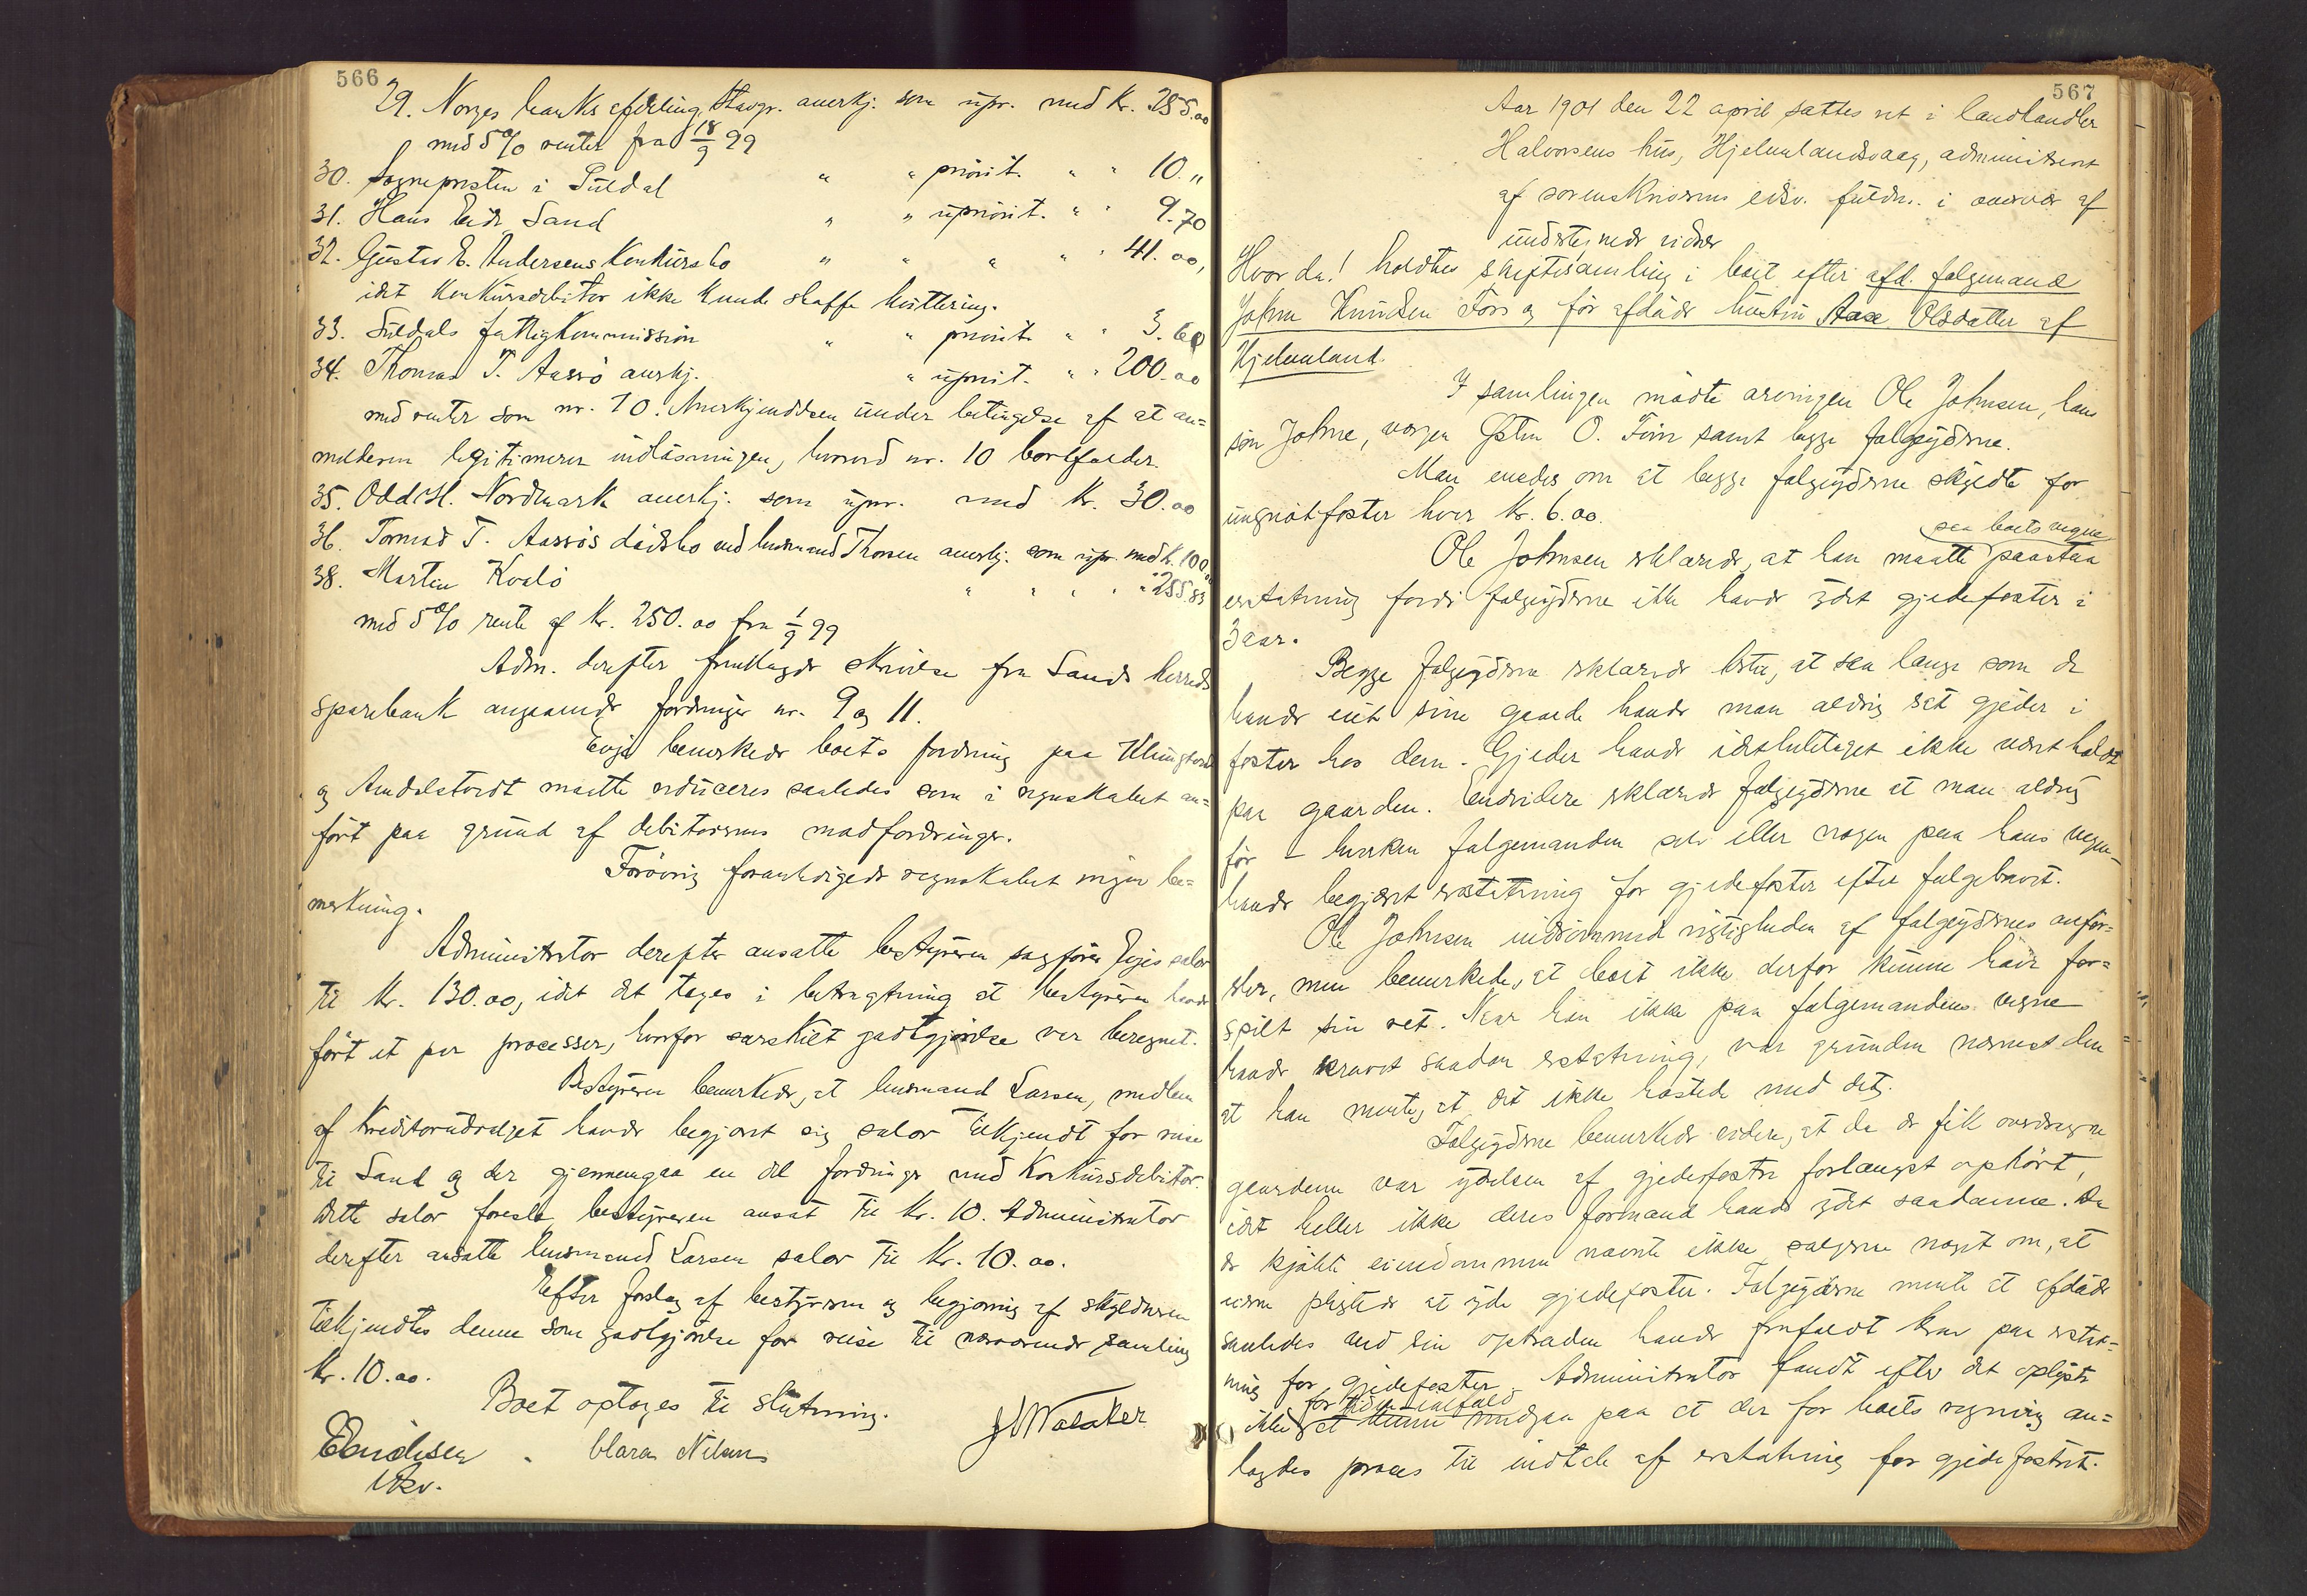 566
29. Norges banks afdeling Stavgr. anerkj. som upr. med Kr. 255.00
med 5% renter fra 18/9 99
30. Sognepresten i Suldal " " priorit. " " 10."
31. Hans Eide Sand " " upriorit. " " 9.70
32. Gustav E. Andersens Konkursbo " " " " " 41.00,
idet Konkursdebitor ikke kunde skaffe kvittering.
33. Suldals fattigkommission " " priorit. " " 3.60
34. Thomas T. Aarrö anerkj. " uprit. " " 200.00
med renter som nr. 10. Anerkjendelsen under betingelse af at an=
melderen legitimerer indlösningen, hvorved nr. 10 bortfalder.
35. Odd H. Nordmark anerkj. som upr. med Kr. 30.00
36. Tormod T. Aarrös dödsbo ved lensmand Thorsen anerkj. som upr. med K. 100.00
38. Martin Kvalö " " " " " 255.83
med 5% rente af Kr. 250.00 fra 1/9 99
Adm. derefter fremlagde skrivelse fra Sands herreds
sparebank angaaende fordringer nr. 9 og 11.
Euje bemerkede boets fordring paa
og maatte reduceres saaledes som i regnskabet an=
fört paa grund af debitorernes modfordringer.
Forövrig foranledigede regnskabet ingen be=
merkning.
Administrator derefter ansatte bestyreren sagförer Eujes salær
til Kr. 130.00, idet det toges i betragtning at bestyreren havde
fört et par processer, hvorfor særskilt godtgjörelse var beregnet.
Bestyreren bemerkede, at lensmand Larsen, medlem
af Kreditorudvalget havde begjært sig salær tilkjendt for reise
til Sand og der gjennemgaa en del fordringer med Konkursdebitor.
Dette salær foreslo bestyreren ansat til Kr. 10. Administrator
derefter ansatte lensmand Larsen salær til Kr. 10.00.
Efter forslag af bestyreren og begjæring af skyldneren
tilkjendtes denne som godtgjörelse for reise til nærværende samling
Kr. 10.00.
Boet optoges til slutning.
Clara Nilsen
567
Aar 1901 den 22 april sattes ret i landhandler
Halvorsens hus, Hjelmelandsvaag, administreret
af sorenskriverens edsv. fuldm. i overvær af
undertegnede vidner
Hvor da! holdtes skiftesamling i boet efter afd. folgemand
John Knudsen Före og för afdöde hustru Aase Olsdatter af
Hjelmeland.
I samlingen mödte arvingen Ole Johnsen, hans
sön Johne, vergen Östen O. Före samt begge folgeyderne.
Man enedes om at begge folgeyderne skyldte for
ungnötfoster hver Kr. 6.00.
Ole Johnsen erklærede, at han maatte paa boets vegne paastaa
erstatning fordi folgeyderne ikke havde ydet gjedefoster i
3 aar.
Begge folgeyderne erklærede hertil, at saa længe som de
havde eiet sine gaarde havde man aldrig set gjeder i
foster hos dem. Gjeder havde idethele taget ikke været holdt
paa gaarden. Endvidere erklærede folgeyderne at man aldrig
för – hverken folgemanden selv eller nogen paa hans vegne –
havde begjært erstatning for gjedefoster efter folgebrevet.
Ole Johnsen indrömmed rigtigheden af folgeydernes anför=
sler, men bemerkede, at boet ikke derfor kunne have for=
spilt sin ret. Naar han ikke paa folgemandens vegne
havde krævet saadan erstatning, var grunden nærmest den
at han mente, at det ikke hastede med det.
Folgeyderne bemerkede videre, at da de fik overdragne
gaardene var ydelsen af gjedefoster forlængst ophört,
idet heller ikke deres formand havde ydet saadanne. Da
de kjöbte eiendommen nævnte ikke sælgerne noget om, at
eierne pligtede at yde gjedefoster. Folgeyderne mente at afdöde
saaledes ved sin optræden havde frafaldt krav paa erstat=
ning for gjedefoster. Administrator fandt efter det oplyste
ikke for tiden ialfald at kunne medgaa paa at der for boets regning an=
lagdes proces til indtale af erstatning for gjedefostret.